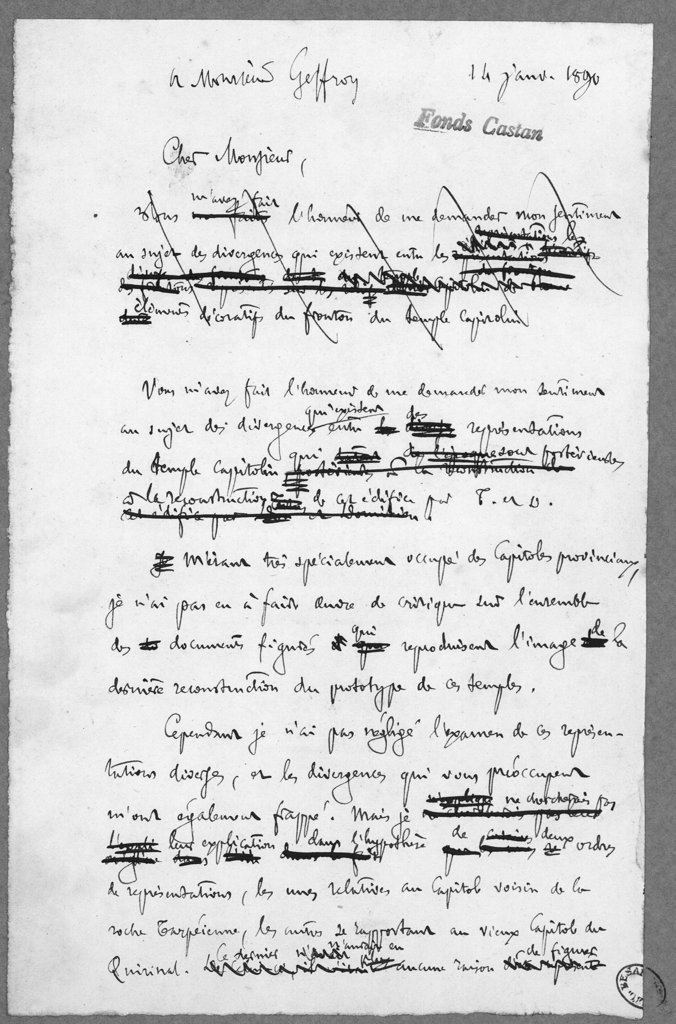 a Monsieur Geffroy 14 janv. 1890
Fonds Castan
Cher Monsieur,
m'avez fait
Vous l'honneur de me demander mon sentiment
au sujet des divergences qui existent entre les
éléments décoratifs du fronton du temple Capitolin
Vous m'avez fait l'honneur de me demander mon sentiment
qui existent des
au sujet des divergences entre représentations
du temple Capitolin qui postérieures
à la reconstruction de cet édifice par T. et D.
M'étant très spécialement occupé des Capitoles provinciaux,
je n'ai pas eu à faire œuvre de critique sur l'ensemble
qui de
des documents figurés reproduisent l'image la
dernière reconstruction du prototype de ces temples.
Cependant je n'ai pas négligé l'examen de ces représen-
tations diverses, et les divergences qui vous préoccupent
m'ont également frappé. Mais je ne chercherais pas
leur explication dans l'hypothèse de deux ordres
de représentations, les unes relatives au Capitole voisin de la
roche Tarpéienne, les autres se rapportant au vieux Capitole du
Ce dernier n'aurait eu de figurer
Quirinal. aucune raison
BESAN